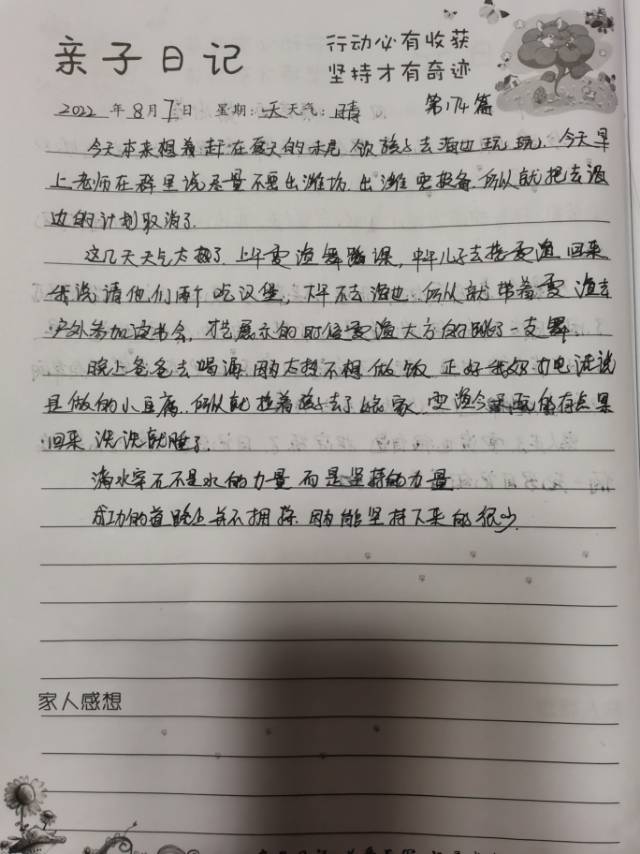 亲子日记
行动必有收获
坚持才有奇迹
2022年8月7日 星期:天 天气:晴 第174篇
今天本来想着赶在夏天的末尾领孩子去海边玩玩,今天早
上老师在群里说尽量不要出潍坊,出潍要报备,所以就把去海
边的计划取消了.
这几天天气太热了,上午雯渲舞蹈课,中午儿子去接雯渲,回来
我说请他们两个吃汉堡,下午不去海边,所以就带着雯渲去
户外参加读书会,才艺展示的时候雯渲大方的跳了一支舞.
晚上爸爸去喝酒,因为太热不想做饭,正好我妈打电话说
是做的小豆腐,所以就拉着孩子去了姥家,雯渲今天玩的有点累
回来洗洗就睡了.
滴水穿石不是水的力量而是坚持的力量
成功的道路上并不拥挤,因为能坚持下来的很少.
家人感想